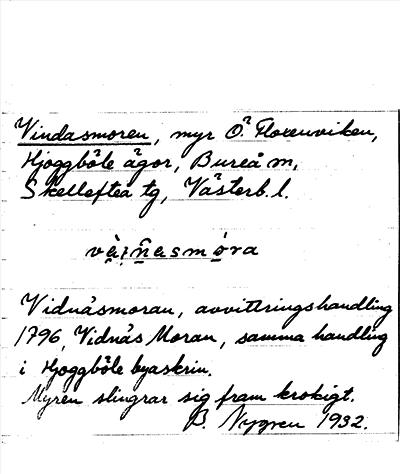 Vindasmoren, myr Ö. Florenviken,
Hjoggböle ägor, Bureå m,
Skellefteå tg, Västerb. l.
vàı̣n̂asmóra
Vidnåsmoran, avvittringshandling
1796, Vidnås Moran, samma handling
i Hjoggböle byaskrin.
Myren slingrar sig fram krokigt.
B. Nygren 1932.